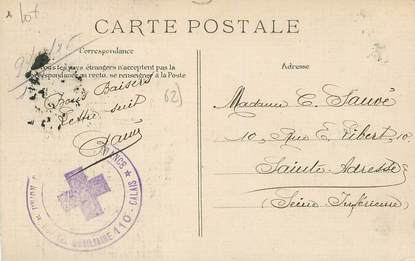 lot
CARTE POSTALE
Correspondance
Tous les pays étrangers n'acceptent pas la
correspondance au recto, se renseigner à la Poste
Adresse
Bons Baisers
Lettre suit
62)
Madame C. Sauvé
10, Rue E. Vibert, 10
Sainte-Adresse
(Seine Inférieure)
110 - CALAIS